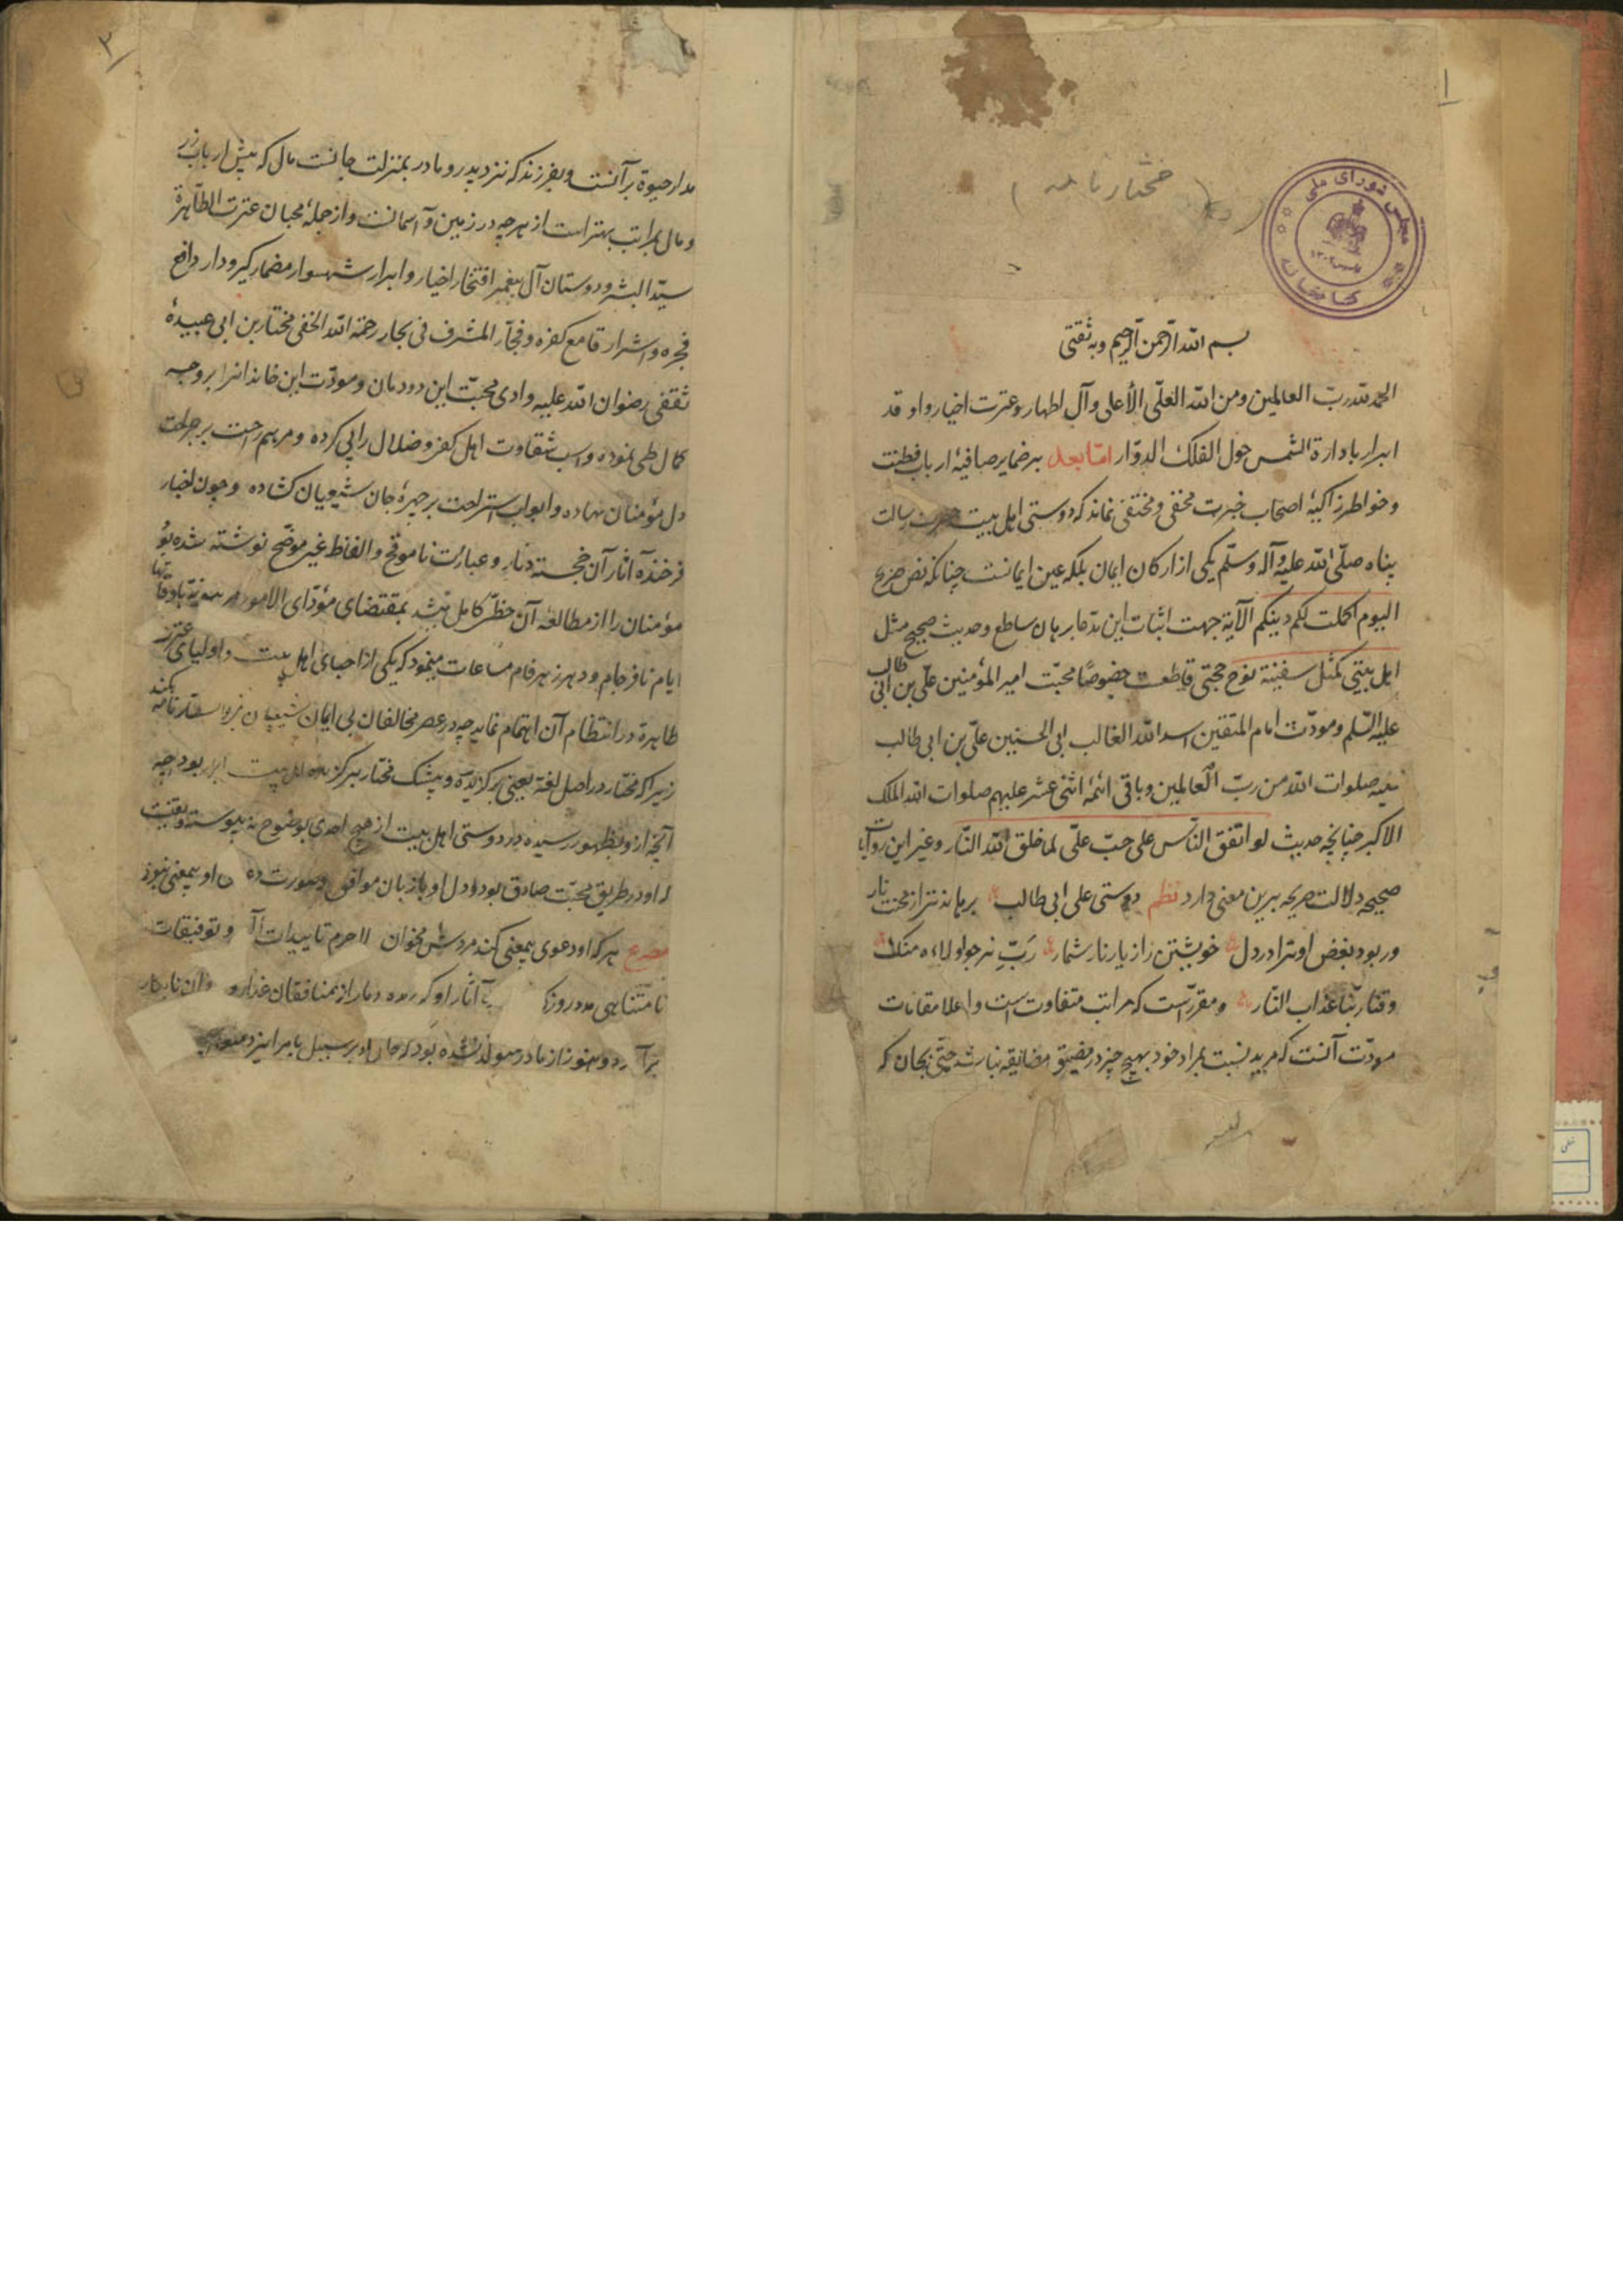 ۱
مختارنامه
مجلس شورای ملی
کتابخانه
بسم الله الرحمن الرحیم وبه ثقتی
الحمد لله رب العالمین ومن الله العلی الأعلی وآل اطهار وعترت اخیار واو قد
ابرار بادارة الشمس حول الفلک الدوار اما بعد بر ضمایر صافیهٔ ارباب فطنت
وخواطر زاکیهٔ اصحاب خبرت مخفی ومختفی نماند که دوستی اهل بیت حضرت رسالت
پناه صلی الله علیه وآله وسلم یکی از ارکان ایمان بلکه عین ایمانست چنانکه نص صریح
الیوم اکملت لکم دینکم الآیة جهت اثبات این مدعا برهان ساطع وحدیث صحیح مثل
اهل بیتی کمثل سفینة نوح حجتی قاطعست خصوصًا محبت امیر المؤمنین علی بن ابی طالب
علیه السلم ومودت امام المتقین اسد الله الغالب ابی الحسنین علی بن ابی طالب
علیه صلوات الله من رب العالمین وباقی ائمهٔ اثنی عشر علیهم صلوات الله الملک
الاکبر چنانچه حدیث لو اتفق الناس علی حب علی لما خلق الله النار وغیر این روایات
صحیحه دلالت صریحه برین معنی دارد نظم دوستی علی ابی طالب برهاند ترا از محنت نار
ور بود بغض او ترا در دل خویشتن را زیار نار شمار رب نرجو لولاءه منک
وقنا ربنا عذاب النار ومقررست که مراتب متفاوت است واعلا مقامات
مودت آنست که مرید نسبت بمراد خود بهیچ چیز در مضیق مضایقه نباشد حتی بجان که
۲
مدار حیوة بر آنست وبفرزند که نزد پدر ومادر بمنزلت جانست مال که پیش ارباب زر
ومال بمراتب بهتر است از هرچه در زمین وآسمانست واز جملهٔ محبان عترت الطاهرة
سید البشر ودوستان آل پیغمبر افتخار اخیار وابرار شهسوار مضمار گیر ودار دافع
فجره واشرار قامع کفره وفجار المشرف فی بحار رحمة الله الخفی مختار بن ابی عبیدهٔ
ثقفی رضوان الله علیه وادی محبت این دودمان ومودت این خاندانرا بر وجه
کمال طی نموده واسب شقاوت اهل کفر وضلال را پی کرده ومرهم راحت بر جراحت
دل مؤمنان نهاده وابواب استراحت بر چهرهٔ جان شیعیان کشاده وچون اخبار
فرخنده آثار آن خجسته دثار وعبارت ناموقح والفاظ غیر موضح نوشته شده بود
مؤمنان را از مطالعهٔ آن حظی کامل نمیشد بمقتضای مؤدّای الامور مرهونة باوقاتها
ایام نافرجام ودهر زهرفام مساعات مینمود که یکی از احبای اهل بیت واولیای عترت
طاهرة در انتظام آن اهتمام نماید چه در عصر مخالفان بی ایمان شیعیان
زیرا که مختار در اصل لغة یعنی برکزیده وبیشک مختار برکزیده اهل بیت ابرار بود چه
آنچه از وبظهور رسیده در دوستی اهل بیت از هیچ احدی بوضوح نه پیوسته وبحقیقت
او در طریق محبت صادق بود ودل او با زبان موافق وصورت او بمعنی نبود
مصرع هر که او دعوی بیمعنی کند مردش مخوان لا جرم تاییدات وتوفیقات
نامتناهی مدد روزکار آثار او کردیده دمار از منافقان غدار
برآورد وهنوز از مادر متولد نشده بود که جان او بر سبیل